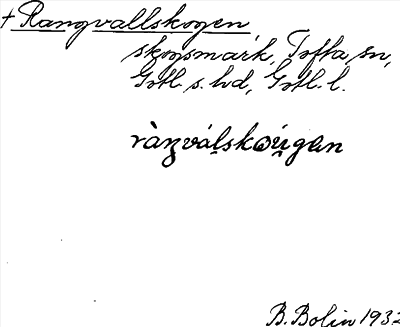 + Rangvallskogen
skogsmark, Tofta sn,
Gotl. s. hd, Gotl. l.
ràŋválskωúgan
B. Bolin 1932